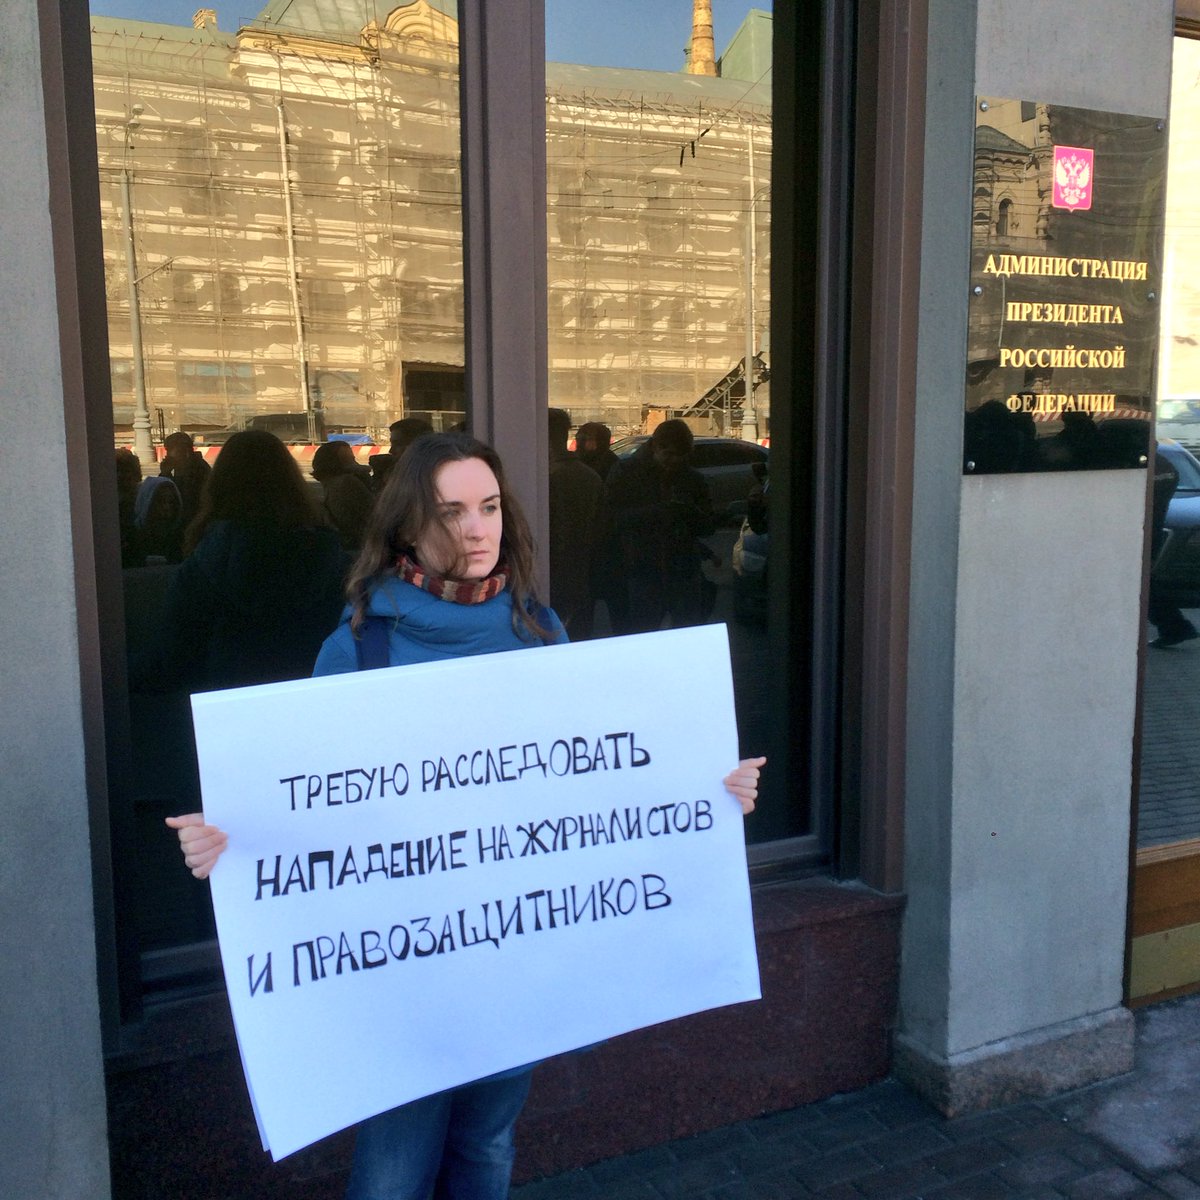 АДМИНИСТРАЦИЯ
ПРЕЗИДЕНТА
РОССИЙСКОЙ
ФЕДЕРАЦИИ
ТРЕБУЮ РАССЛЕДОВАТЬ
НАПАДЕНИЕ НА ЖУРНАЛИСТОВ
И ПРАВОЗАЩИТНИКОВ